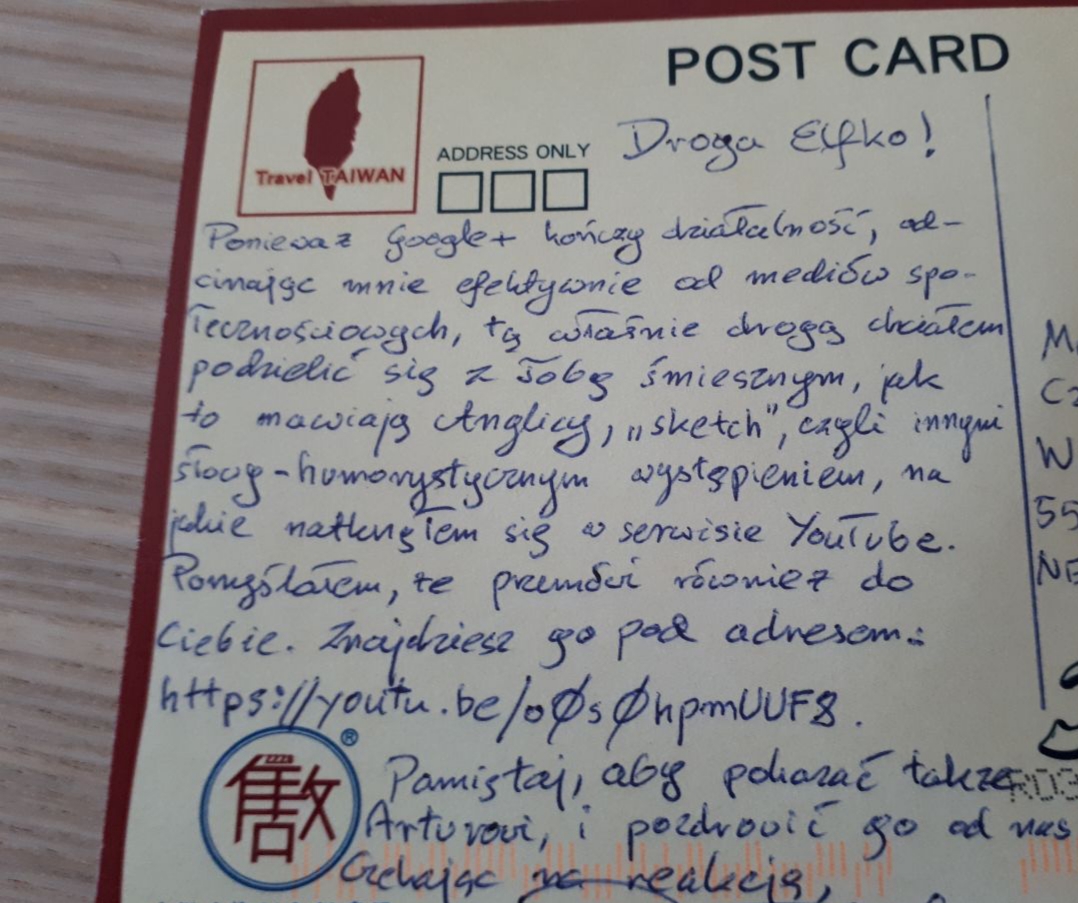 POST CARD
Travel TAIWAN
ADDRESS ONLY
Droga Elfko!
Ponieważ Google+ kończy działalność, od-
cinając mnie efektywnie od mediów spo-
łecznościowych, tą właśnie drogą chciałem
podzielić się z Tobą śmiesznym, jak
to mawiają Anglicy, „sketch", czyli innymi
słowy - humorystycznym wystąpieniem, na
jakie natknąłem się w serwisie YouTube.
Pomyślałem, że przemówi również do
Ciebie. Znajdziesz go pod adresem:
https://youtu.be/o0s0hpmUUF8.
®
Pamiętaj, aby pokazać także
Arturowi, i pozdrowić go od nas
Czekając na reakcję,
M
Cz
W
55
NE